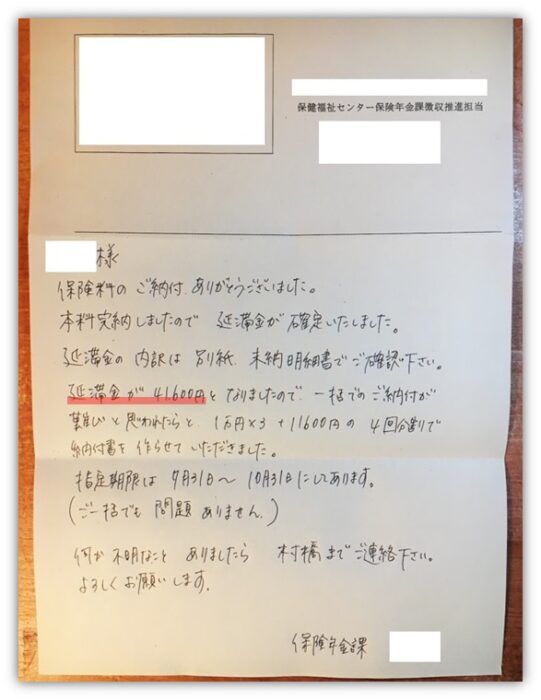 保健福祉センター保険年金課徴収推進担当
様
保険料のご納付ありがとうございました。
本料完納しましたので 延滞金が確定いたしました。
延滞金の内訳は別紙、未納明細書でご確認下さい。
延滞金が41,600円となりましたので、一括でのご納付が
難しいと思われたらと、1万円×3+11600円の4回分割で
納付書を作らせていただきました。
指定期限は7月31日〜10月31日にしてあります。
(ご一括でも問題ありません。)
何か不明なことありましたら 村橋までご連絡下さい。
よろしくお願いします。
保険年金課